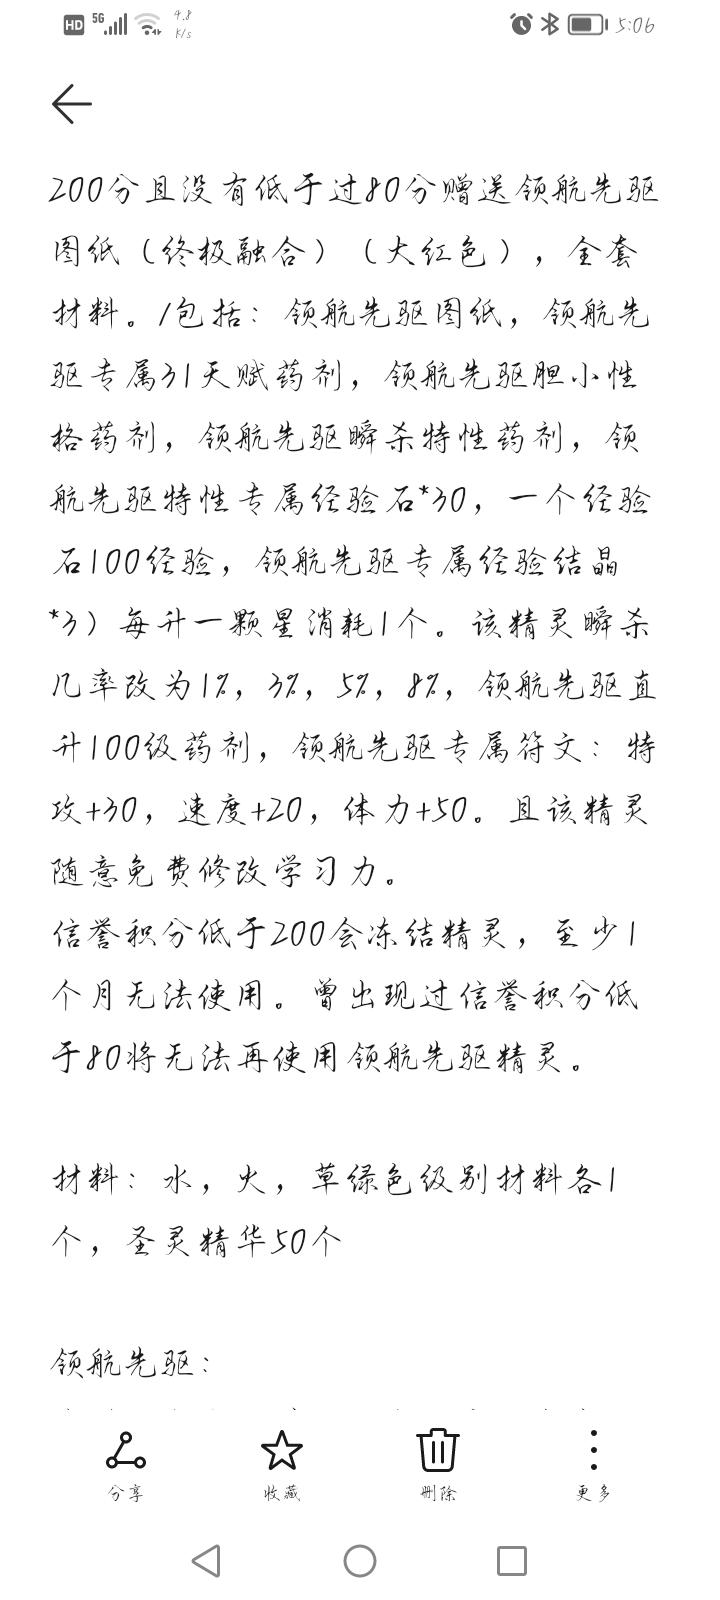 HD 5G 4.8 K/s 5:06
200分且没有低于过80分赠送领航先驱
图纸（终极融合）（大红色），全套
材料。/包括：领航先驱图纸，领航先
驱专属31天赋药剂，领航先驱胆小性
格药剂，领航先驱瞬杀特性药剂，领
航先驱特性专属经验石*30，一个经验
石100经验，领航先驱专属经验结晶
*3）每升一颗星消耗1个。该精灵瞬杀
几率改为1%，3%，5%，8%，领航先驱直
升100级药剂，领航先驱专属符文：特
攻+30，速度+20，体力+50。且该精灵
随意免费修改学习力。
信誉积分低于200会冻结精灵，至少1
个月无法使用。曾出现过信誉积分低
于80将无法再使用领航先驱精灵。
材料：水，火，草绿色级别材料各1
个，圣灵精华50个
领航先驱：
分享 收藏 删除 更多